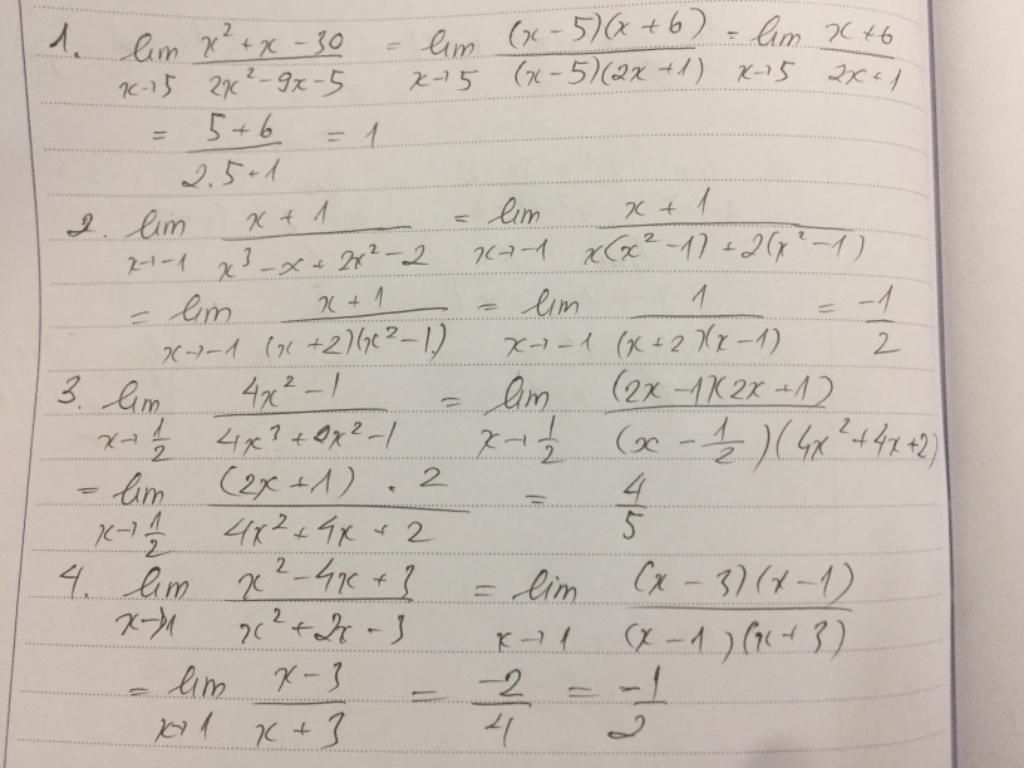 1. lim x→5 (x² + x - 30)/(2x² - 9x - 5) = lim x→5 ((x - 5)(x + 6))/((x - 5)(2x + 1)) = lim x→5 (x + 6)/(2x + 1)
= (5 + 6)/(2.5 + 1) = 1
2. lim x→-1 (x + 1)/(x³ - x + 2x² - 2) = lim x→-1 (x + 1)/(x(x² - 1) + 2(x² - 1))
= lim x→-1 (x + 1)/((x + 2)(x² - 1)) = lim x→-1 1/((x + 2)(x - 1)) = -1/2
3. lim x→1/2 (4x² - 1)/(4x³ + 2x² - 1) = lim x→1/2 ((2x - 1)(2x + 1))/((x - 1/2)(4x² + 4x + 2))
= lim x→1/2 ((2x + 1) . 2)/(4x² + 4x + 2) = 4/5
4. lim x→1 (x² - 4x + 3)/(x² + 2x - 3) = lim x→1 ((x - 3)(x - 1))/((x - 1)(x + 3))
= lim x→1 (x - 3)/(x + 3) = -2/4 = -1/2